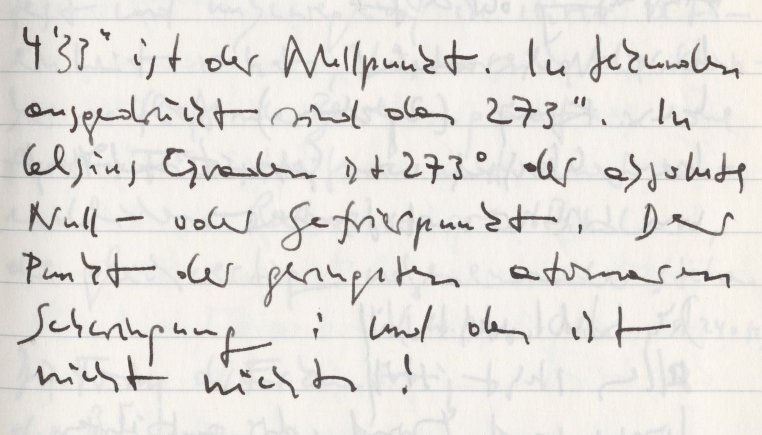 4'33" ist der Nullpunkt. In Sekunden
ausgedrückt sind das 273". In
Celsius Graden ist 273° der absolute
Null – oder Gefrierpunkt. Der
Punkt der geringsten atomaren
Schwingung; und das ist
nicht nichts!